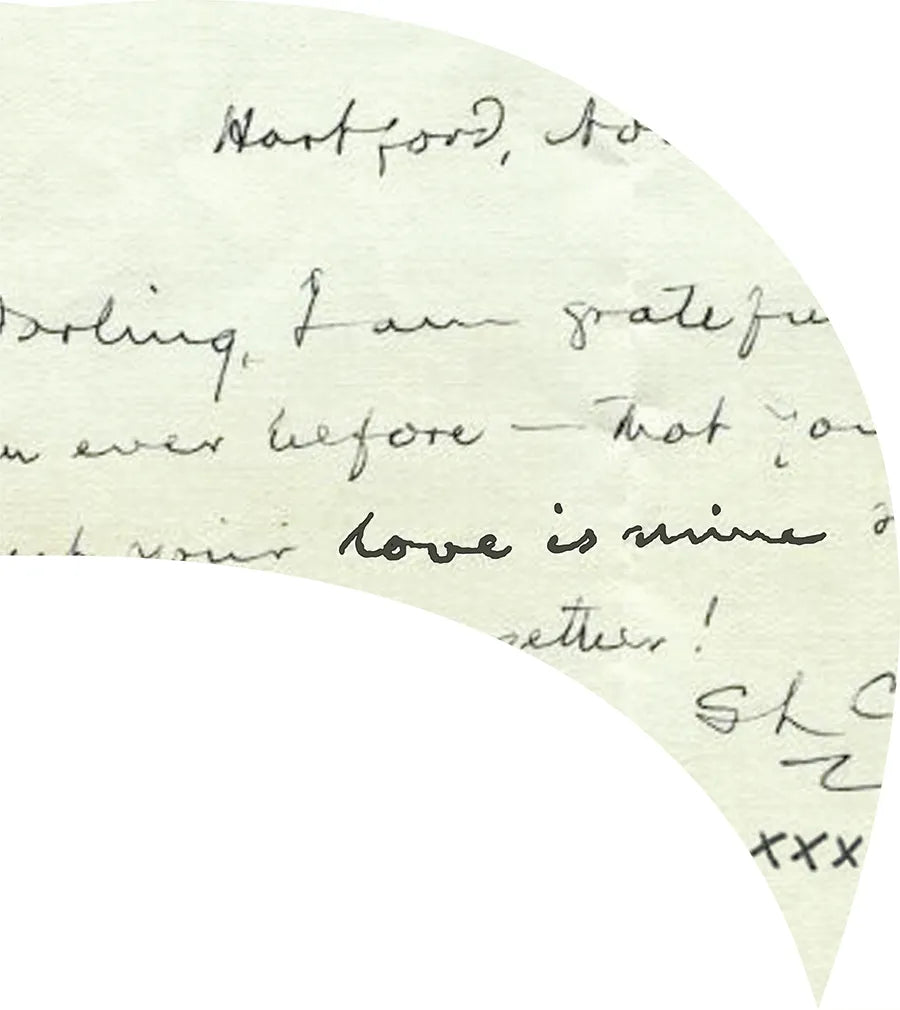 Hartford, No
Darling, I am grateful
ever before — that you
your love is mine
gether!
SLC
xxx